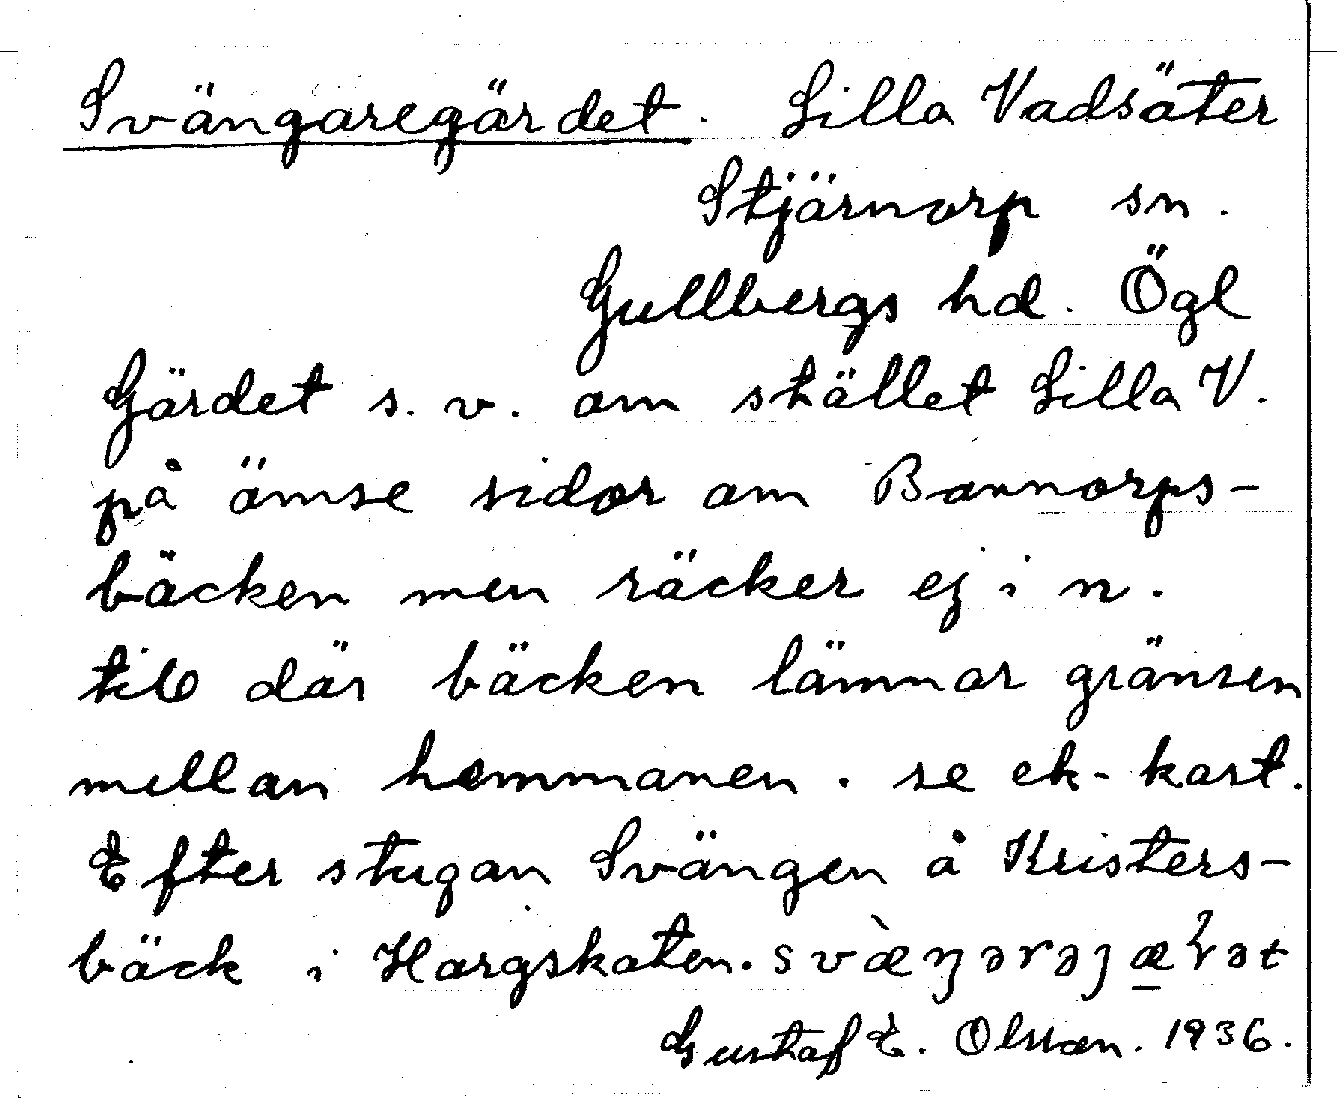 Svängaregärdet. Lilla Vadsäter
Stjärnorp sn.
Gullbergs hd. Ögl
Gärdet s. v. om stället Lilla V.
på ömse sidor om Bannorps-
bäcken men räcker ej i n.
till där bäcken lämnar gränsen
mellan hemmanen. se ek-kart.
Efter stugan Svängen å Kristers-
bäck i Hargskaten.
Gustaf E. Olsson. 1936.